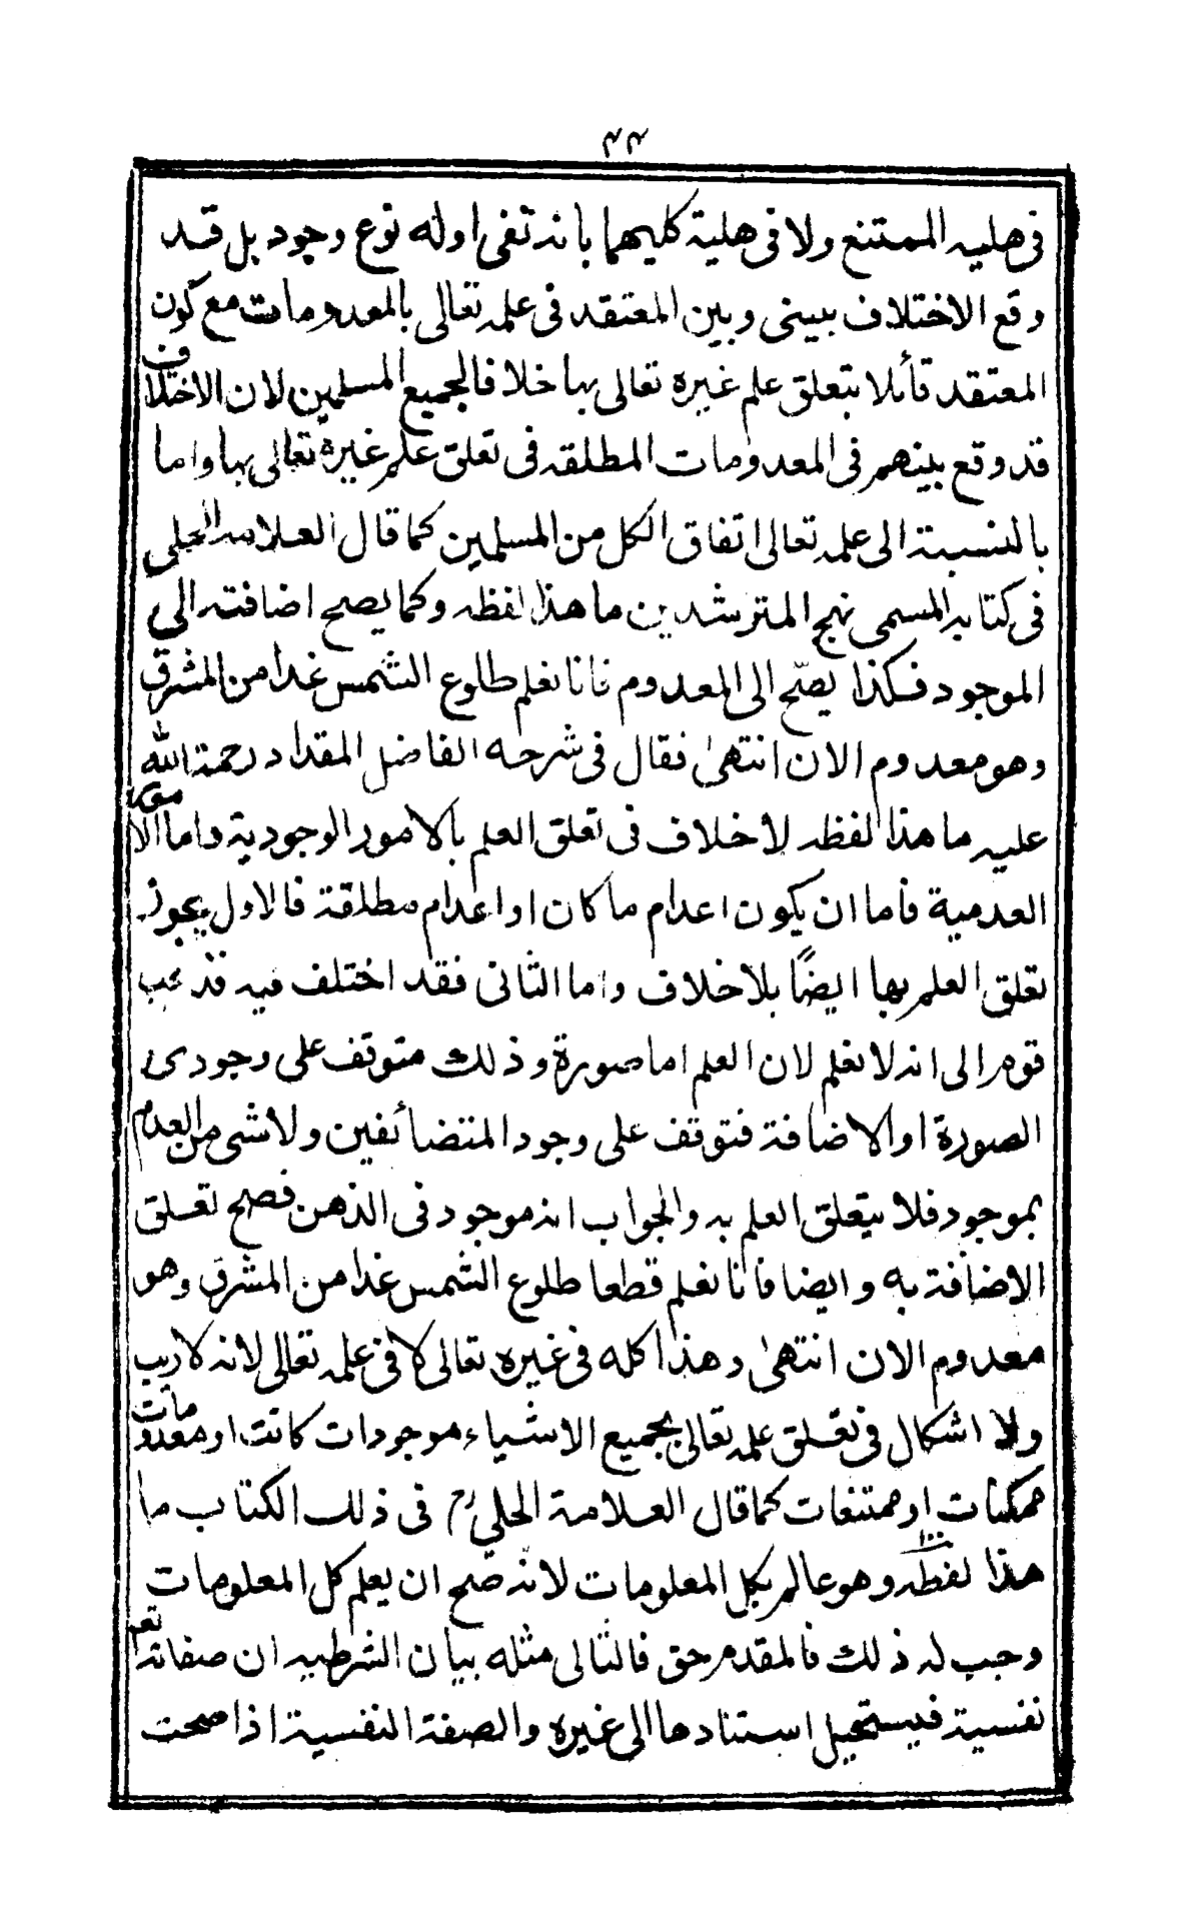 ۴۴
فی هلیه الممتنع ولا فی هلیة کلیهما بانه تفی اوله نوع وجود بل قد
وقع الاختلاف بینی وبین المعتقد فی علمه تعالی بالمعدومات مع کون
المعتقد قائلا بتعلق علم غیره تعالی بها خلافا لجمیع المسلمین لان الاختلاف
قد وقع بینهم فی المعدومات المطلقه فی تعلق علم غیره تعالی بها واما
بالنسبة الی علمه تعالی اتفاق الکل من المسلمین کما قال العلامه الحلی
فی کتابه المسمی نهج المترشدین ما هذا لفظه وکما یصح اضافته الی
الموجود فکذا یصّح الی المعدوم فانا نعلم طلوع الشمس غدا من المشرق
وهو معدوم الان انتهیٰ فقال فی شرحه الفاضل المقداد رحمة الله
علیه ما هذا لفظه لاخلاف فی تعلق العلم بالامور الوجودیة واما الامور
العدمیة فاما ان یکون اعدام ما کان او اعدام مطلقة فالاول یجوز
تعلق العلم بها ایضًا بلاخلاف واما الثانی فقد اختلف فیه فذهب
قوم الی انه لا نعلم لان العلم اما صورة وذلک متوقف علی وجود ی
الصورة او الاضافة فتوقف علی وجود المتضائفین ولا شی من العدم
بموجود فلا یتعلق العلم به والجواب انه موجود فی الذهن فصح تعلق
الاضافة به وایضا فانا نعلم قطعا طلوع الشمس غدا من المشرق وهو
معدوم الان انتهیٰ وهذا کله فی غیره تعالی لا فی علمه تعالی لانه لا ریب
ولا اشکال فی تعلق علمه تعالی بجمیع الاشیاء موجودات کانت او معدومات
ممکنات او ممتنعات کما قال العلامة الحلی رح فی ذلک الکتاب ما
هذا لفظه وهو عالم بکل المعلومات لانه صّح ان یعلم کل المعلومات
وجب له ذلک فالمقدم حق فالتالی مثله بیان الشرطیه ان صفاته تعا
نفسیة فیستحیل استنادها الی غیره والصفة النفسیة اذا صحت